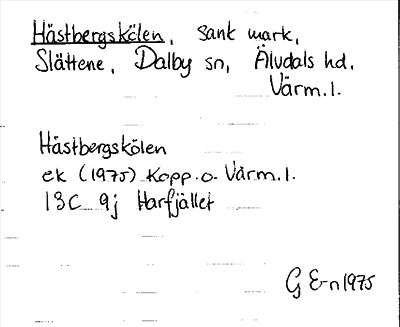 Hästbergskölen, sank mark,
Slättene, Dalby sn, Älvdals hd,
Värm.l.
Hästbergskölen
ek (1975) Kopp.o. Värm.l.
13C 9j Harfjället
G E-n 1975